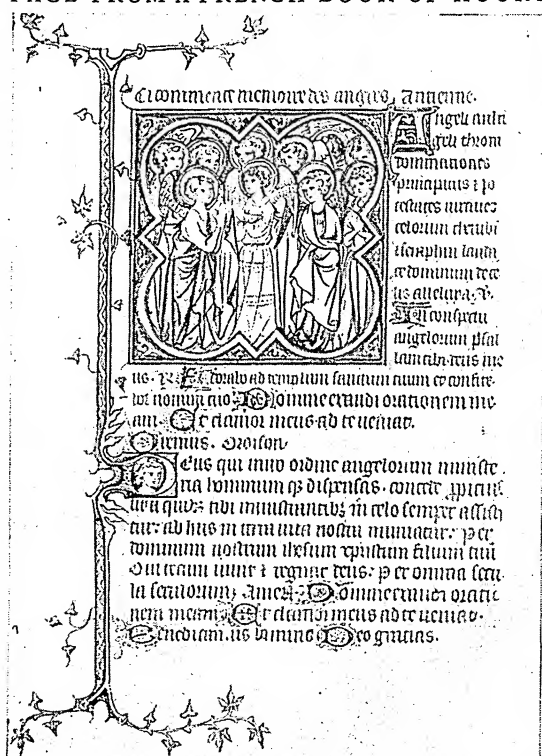 PAGE FROM A FRENCH BOOK OF HOURS
Ci commence memoire des angles Antienne.
Angeli archi
geli throni
dominationes
principatus ⁊ po
testates uirtutes
celorum cherubi
⁊ seraphin lauda
te dominum de ce
lis alleluya. V.
In conspectu
angelorum psal
lam tibi deus me
us. R. Adorabo ad templum sanctum tuum et confite
bor nomini tuo. Domine exaudi orationem me
am. Et clamor meus ad te ueniat.
Oremus. Oroison
Deus qui miro ordine angelorum ministe
ria hominum qz dispensas. concede
ut a quibz tibi ministrantibz in celo semper assisti
tur. ab hiis in terra uita nostra muniatur. per
dominum nostrum ihesum xpistum filium tuu
Qui tecum uiuit ⁊ regnat deus. Per omnia secu
la seculorum. Amen. Domine exaudi oratio
nem meam. Et clamor meus ad te ueniat.
Benedicam.us domino Deo gracias.